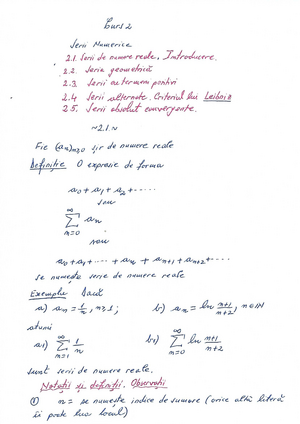 Curs 2
Serii Numerice
2.1. Serii de numere reale. Introducere.
2.2. Seria geometrică
2.3 Serii cu termeni pozitivi
2.4 Serii alternate. Criteriul lui Leibniz
2.5. Serii absolut convergente.
~2.1.~
Fie (an)n≥0 șir de numere reale
Definiție O expresie de forma
a0 + a1 + a2 + ·····
sau
∞
∑ an
n=0
sau
a0 + a1 + ··· + an + an+1 + an+2 + ····
se numește serie de numere reale
Exemplu Dacă
a) an = 1/n, n≥1; b) an = ln n+1/n+2, n∈ℕ
atunci
a1) ∞∑n=1 1/n b1) ∞∑n=0 ln n+1/n+2
sunt serii de numere reale.
Notații și definiții. Observații
① n = se numește indice de sumare (orice altă literă
îi poate lua locul)